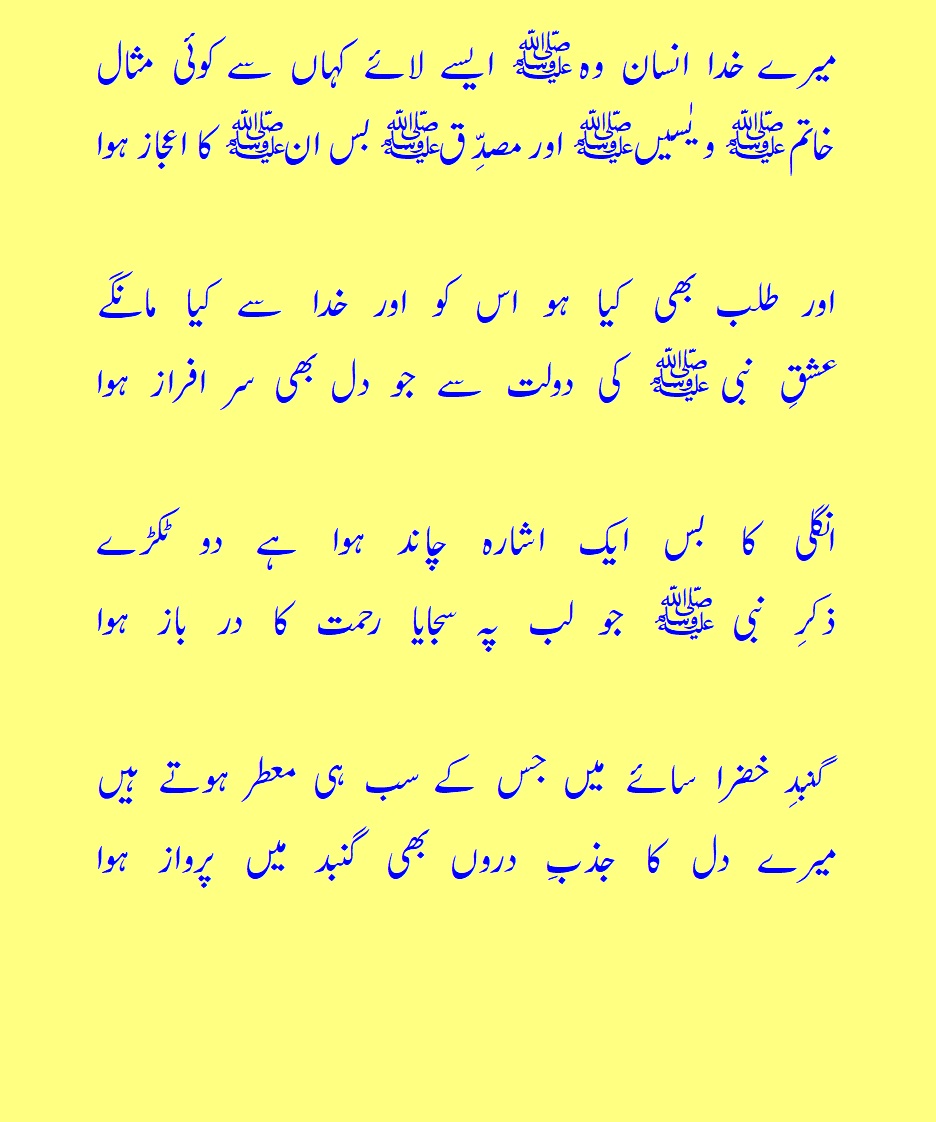 میرے خدا انسان وہ ﷺ ایسے لائے کہاں سے کوئی مثال
خاتم ﷺ و یٰسیں ﷺ اور مصدِّق ﷺ بس ان ﷺ کا اعجاز ہوا
اور طلب بھی کیا ہو اس کو اور خدا سے کیا مانگے
عشقِ نبی ﷺ کی دولت سے جو دل بھی سر افراز ہوا
انگلی کا بس ایک اشارہ چاند ہوا ہے دو ٹکڑے
ذکرِ نبی ﷺ جو لب پہ سجایا رحمت کا در باز ہوا
گنبدِ خضرا سائے میں جس کے سب ہی معطر ہوتے ہیں
میرے دل کا جذبِ دروں بھی گنبد میں پرواز ہوا